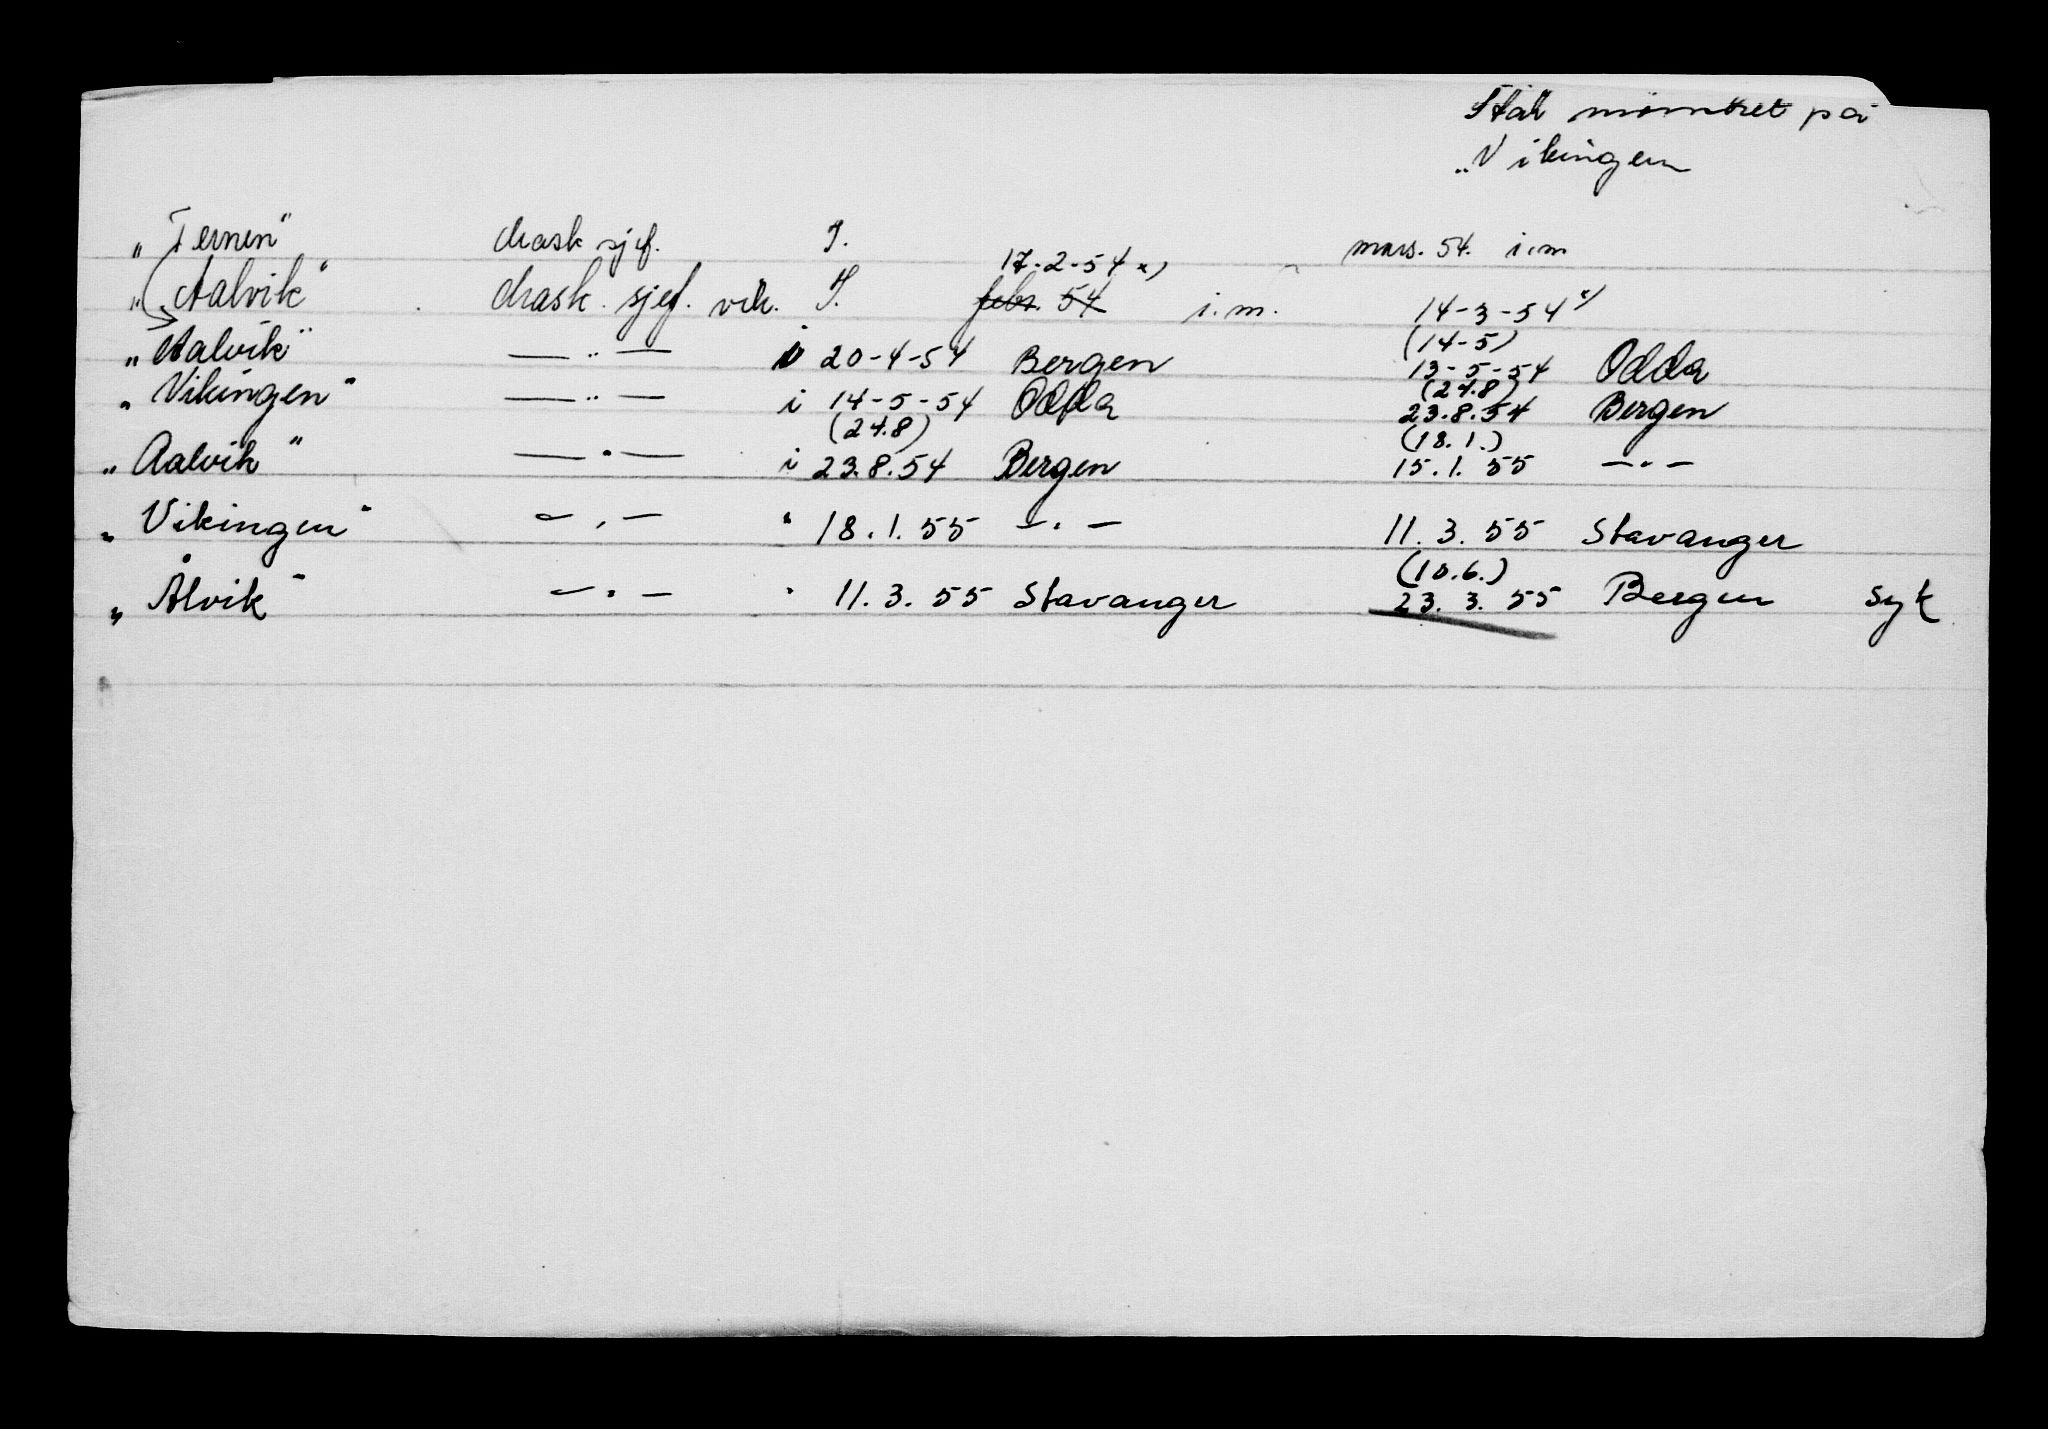 Står mønstret på
„Vikingen
„Ternen" mask sjef. I. mars. 54. i.m
17-2-54 x)
„(Aalvik" mask. sjef. vik. I. febr. 54 i.m. 14-3-54 x)
(14-5)
„Aalvik" — " — i 20-4-54 Bergen 13-5-54 Odda
(24.8)
„Vikingen" — " — i 14-5-54 Odda 23.8.54 Bergen
(24.8) (18.1.)
„Aalvik" — " — i 23.8.54 Bergen 15.1.55 — " —
„Vikingen" — " — " 18.1.55 — " — 11.3.55 Stavanger
(10.6.)
„Ålvik" — " — " 11.3.55 Stavanger 23.3.55 Bergen syk